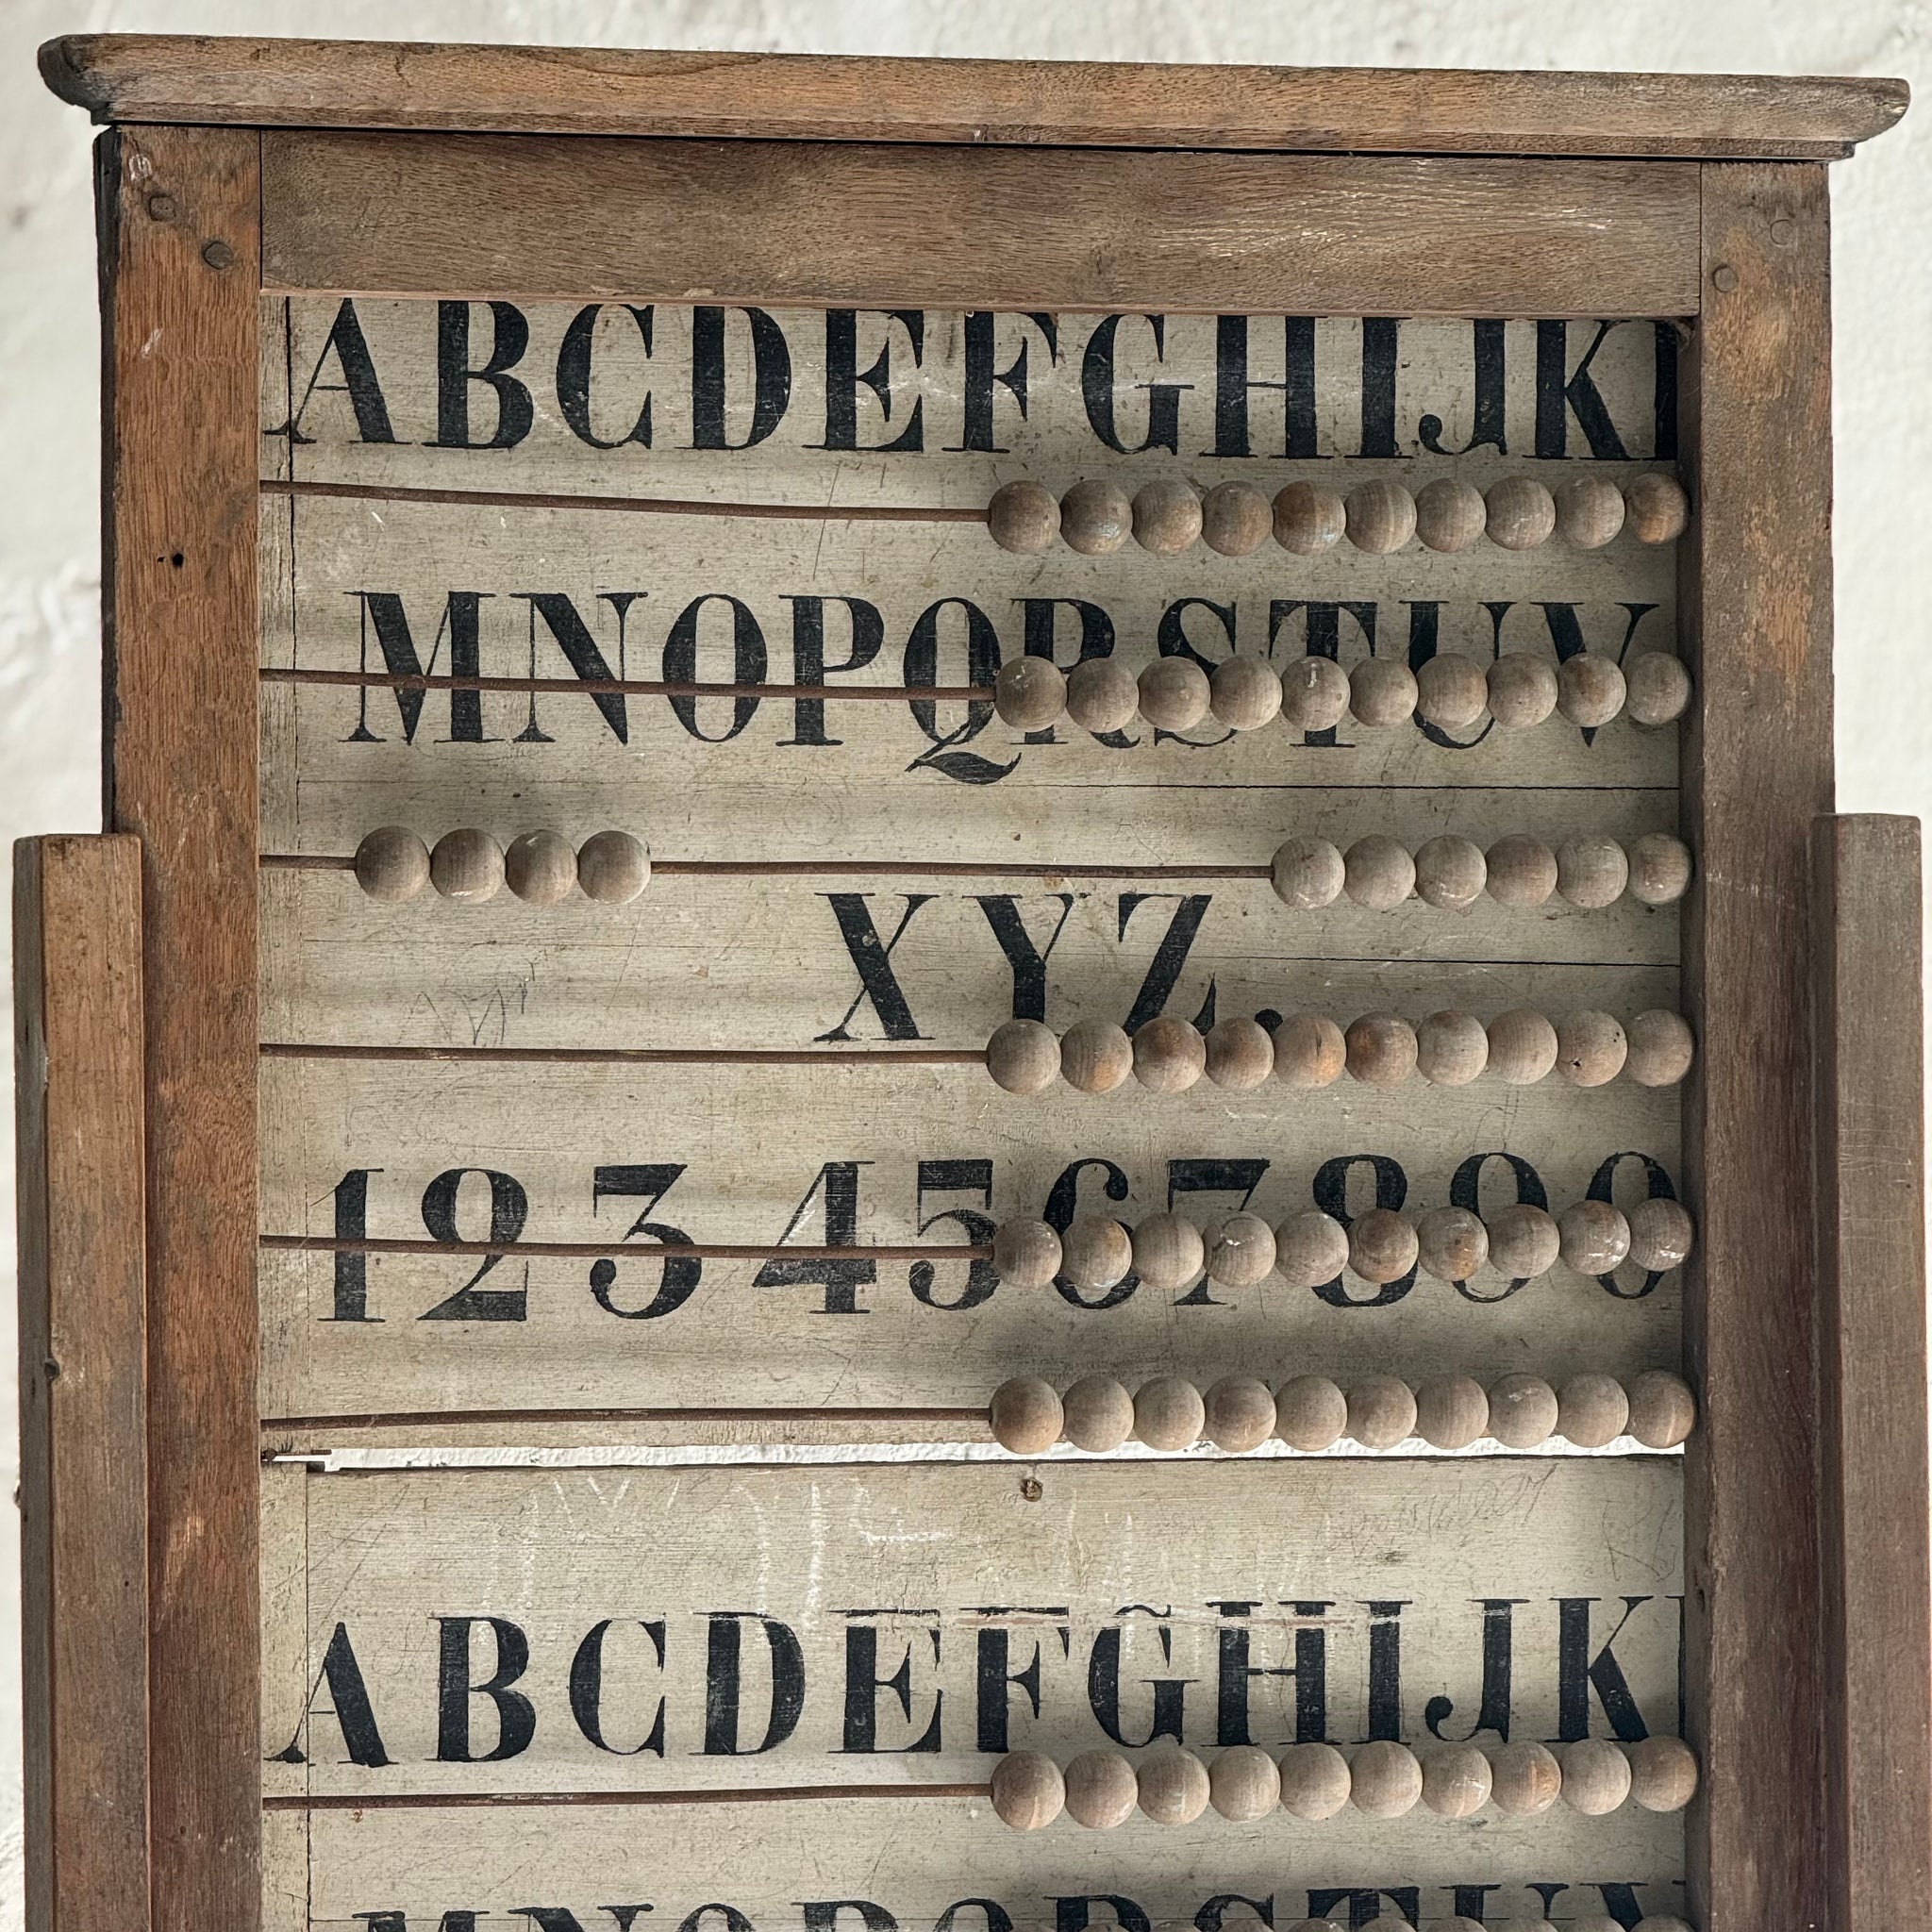 ABCDEFGHIJKL
MNOPQRSTUV
XYZ.
1234567890
ABCDEFGHIJK
MNOPQRSTUV